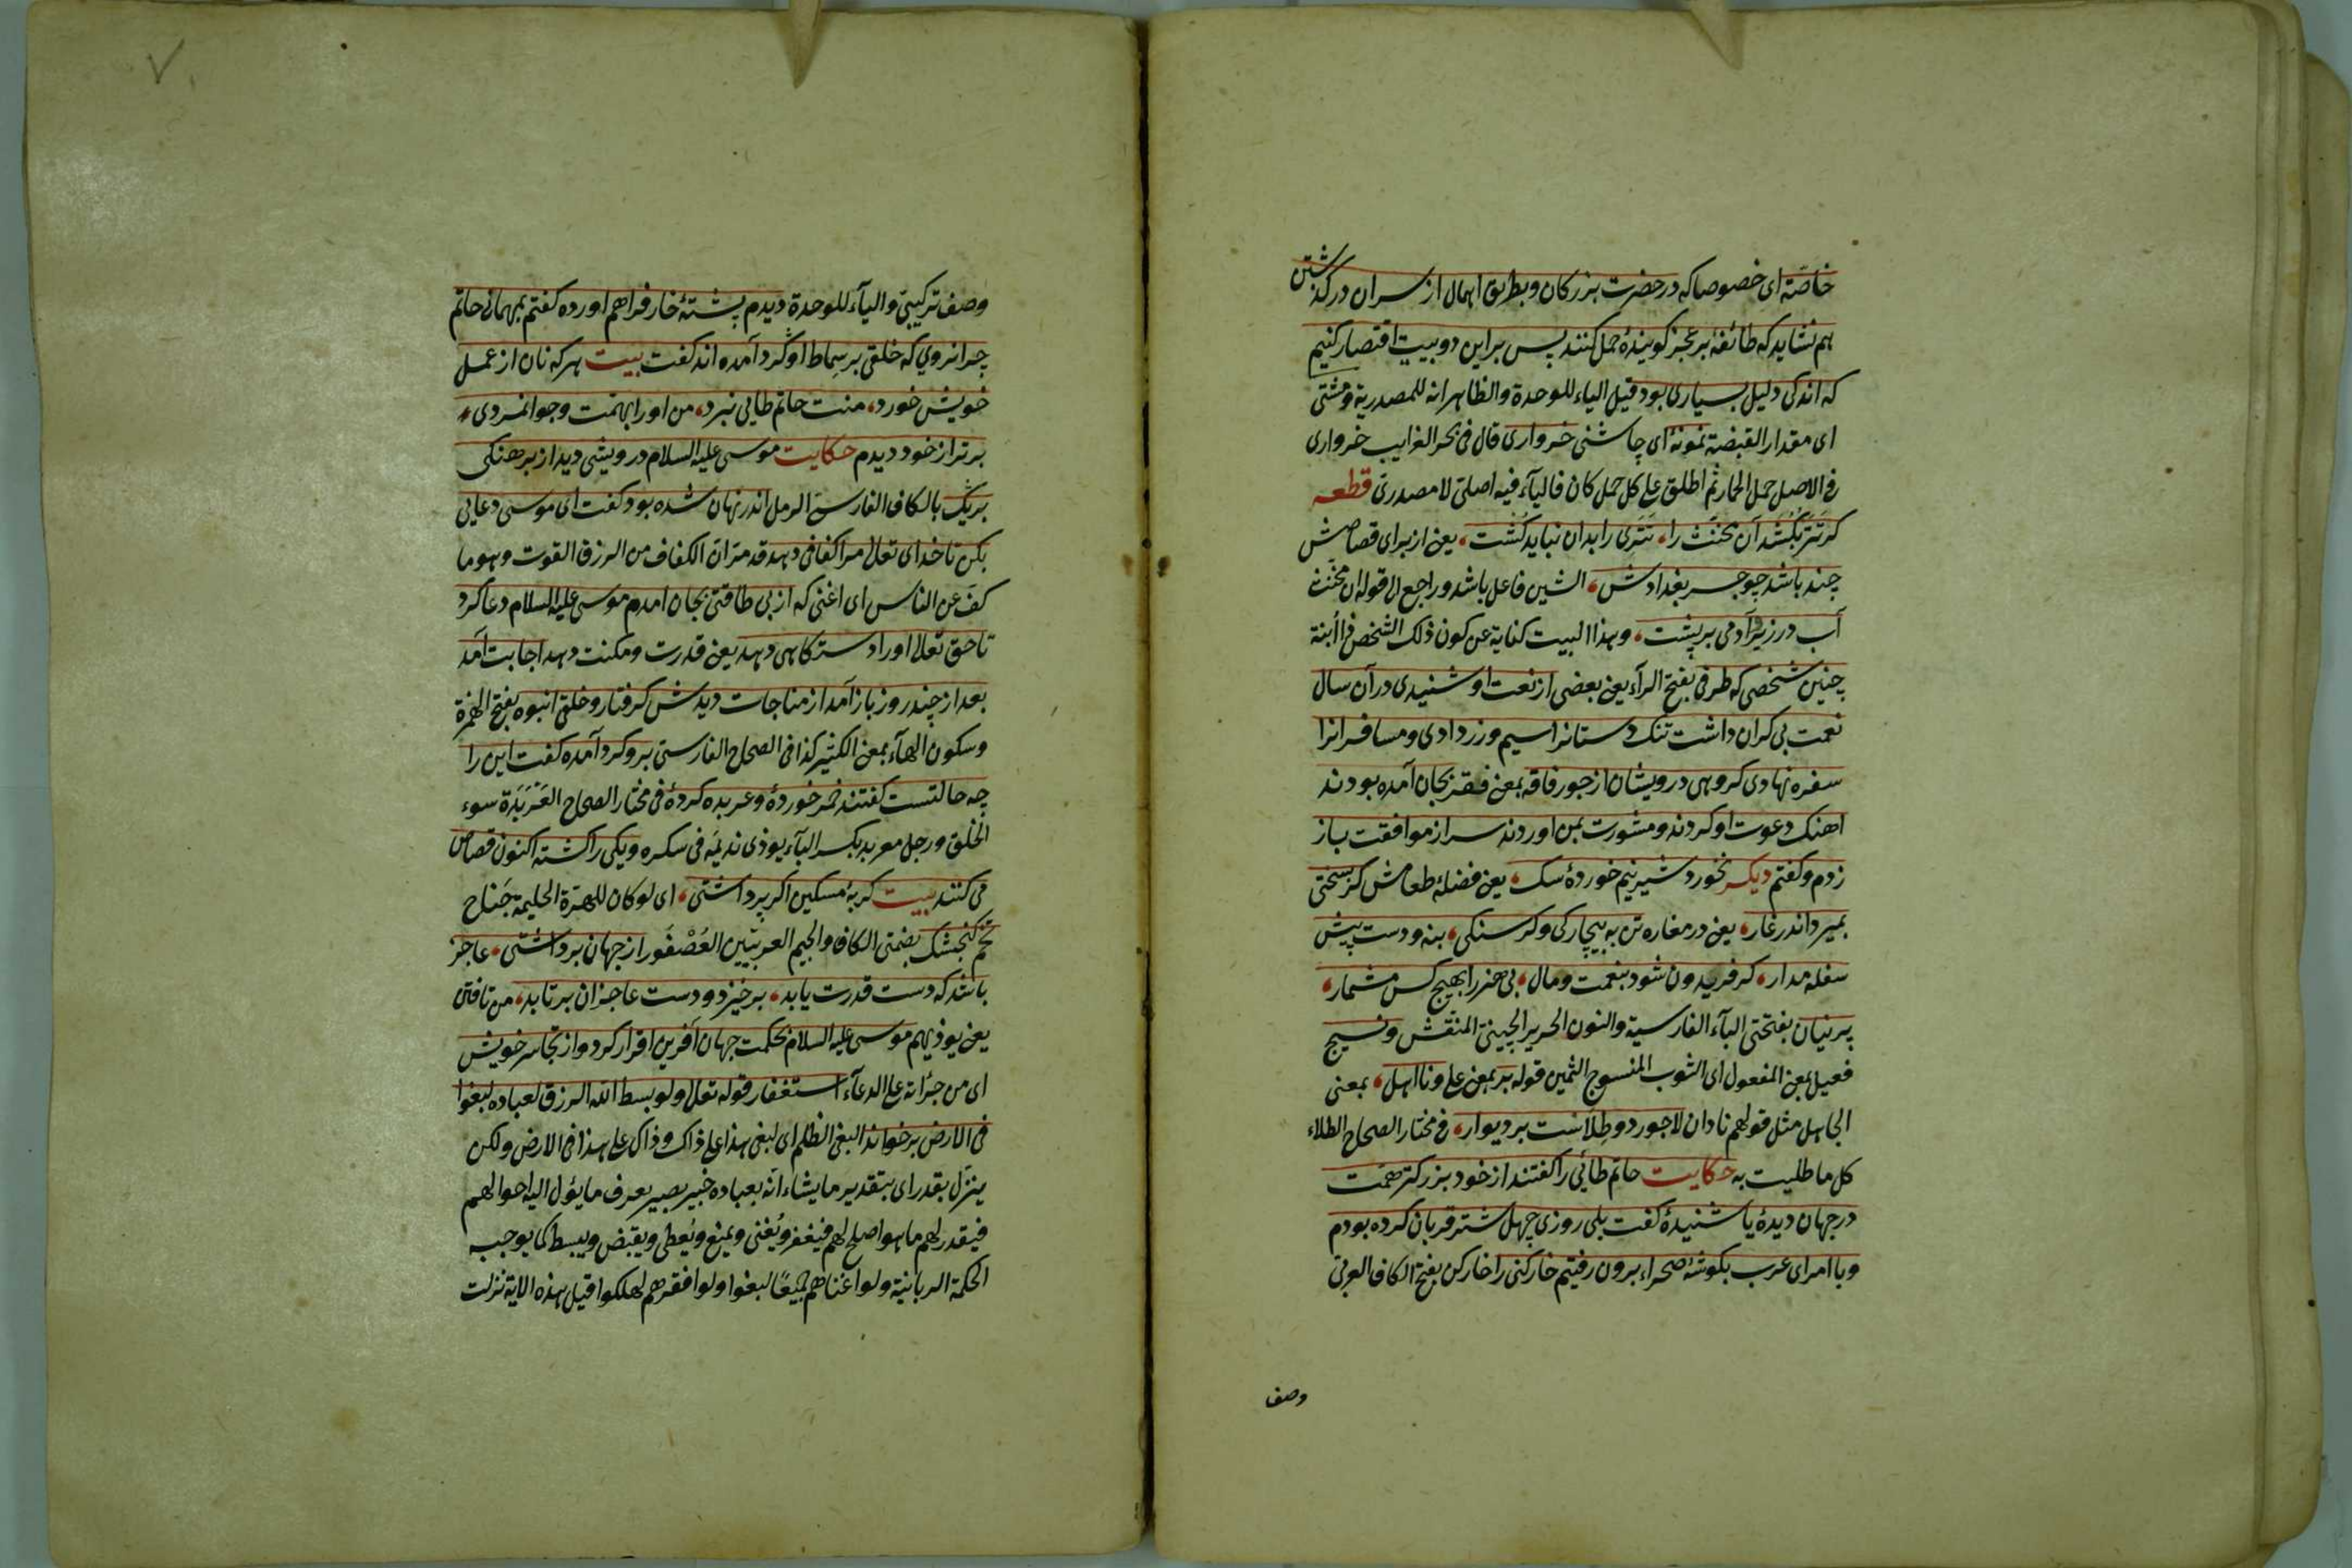 خاصّه ای خصوصا که در حضرت بزرکان و بطریق اهمال از سران در کذشتن
هم نشاید که طائفهٔ بر عجز کویندهٔ حمل کنند پس بر این دو بیت اقتصار کنیم
که اندکی دلیل بسیاری بود قیل الیاء للوحدة والظاهر انه للمصدریة ومشتی
ای مقدار القبضة نمونهٔ ای چاشنی خرواری قال فی بحر الغرایب خرواری
فی الاصل حمل الحمار ثم اطلق علی کل حمل کان فالیآء فیه اصلیّ لا مصدریّ قطعه
کر تتر بکشد آن مخنث را، تتری را بدان نباید کشت، یعنی از برای قصاصش
چند باشد چو جسر بغدادش، الشین فاعل باشد وراجع الی قوله ان مخنث
آب در زیر وآدمی بر پشت، وهذا البیت کنایة عن کون ذلک الشخص فی الأبنة
چنین شخصی که طرفی بفتح الرآء یعنی بعضی از نعت او شنیدی در آن سال
نعمت بی کران داشت تنک دستانرا سیم وزر دادی ومسافرانرا
سفره نهادی کروهی درویشان از جور فاقه بمعنی فقر بجان آمده بودند
اهنک دعوت او کردند ومشورت بمن اوردند سر از موافقت باز
زدم وکفتم دیکر نخورد شیر نیم خوردهٔ سک، یعنی فضلهٔ طعامش کز سختی
بمیرد اندر غار، یعنی در مغاره تن به بیچارکی وکرسنکی، بنه ودست پیش
سفله مدار، کر فریدون شود بنعمت ومال، بی هنر را بهیچ کس مشمار،
پرنیان بفتحتی البآء الفارسیة والنون الحریر الچینیّ المنقش ونسیج
فعیل بمعنی المفعول ای الثوب المنسوج الثمین قوله بر بمعنی علی ونا اهل، بمعنی
الجاهل مثل قولهم نادان لاجورد وطلاست بر دیوار، فی مختار الصحاح الطلاء
کل ما طلیت به حکایت حاتم طائی را کفتند از خود بزرکتر همت
در جهان دیدهٔ یا شنیدهٔ کفت بلی روزی چهل شتر قربان کرده بودم
وبا امرای عرب بکوشهٔ صحراء برون رفتیم خارکنی را خارکن بفتح الکاف العربیّ
وصف
وصف ترکیبیّ والیآء للوحدة دیدم پشتهٔ خار فراهم اورده کفتم بمهمانی حاتم
چرا نروی که خلقی بر سماط او کرد آمده اند کفت بیت هر که نان از عمل
خویش خورد، منت حاتم طایی نبرد، من او را بهمت وجوانمردی،
برتر از خود دیدم حکایت موسی علیه السلام درویشی دید از برهنکی
بریک بالکاف الفارسیّ الرمل اندر نهان شده بود کفت ای موسی دعایی
بکن تا خدای تعالی مرا کفافی دهد قد مرّ ان الکفاف من الرزق القوت وهو ما
کفّ عن الناس ای اغنی که از بی طاقتی بجان امدم موسی علیه السلام دعا کرد
تا حق تعالی او را دستکاهی دهد یعنی قدرت ومکنت دهد اجابت آمد
بعد از چند روز باز آمد از مناجات دیدش کرفتار وخلقی انبوه بفتح الهمزة
وسکون الهآء بمعنی الکثیر کذا فی الصحاح الفارسیّ برو کرد آمده کفت این را
چه حالتست کفتند خمر خوردهٔ وعربده کردهٔ فی مختار الصحاح العَرْبَدَة سوء
الخلق ورجل معربد بکسر البآء یوذی ندیمه فی سکره ویکی را کشته اکنون قصاص
می کنند بیت کربهٔ مسکین اکر پر داشتی، ای لو کان للهرّة الحلیمة جَناح
تخم کنجشک بضمتی الکاف والجیم العربیّین العُصْفُور از جهان برداشتی، عاجز
باشد که دست قدرت یابد، برخیزد ودست عاجزان برتابد، من تافتن
یعنی یوذیهم موسی علیه السلام بحکمت جهان آفرین اقرار کرد واز تجاسر خویش
ای من جرأته علی الدعآء استغفار قوله تعالی ولو بسط الله الرزق لعباده لبغوا
فی الارض برخواند البغی الظلم ای لبغی هذا علی ذاک وذاک علی هذا فی الارض ولکن
ینزّل بقدر ای بتقدیر ما یشاء انّه بعباده خبیر بصیر یعرف ما یؤل الیه احوالهم
فیقدر لهم ما هو اصلح لهم فیفقر ویُغنی ویمنع ویُعطی ویقبض ویبسط کما یوجبه
الحکمة الربانیة ولو اغناهم جمیعًا لبغوا ولو افقرهم لهلکوا قیل هذه الایة نزلت